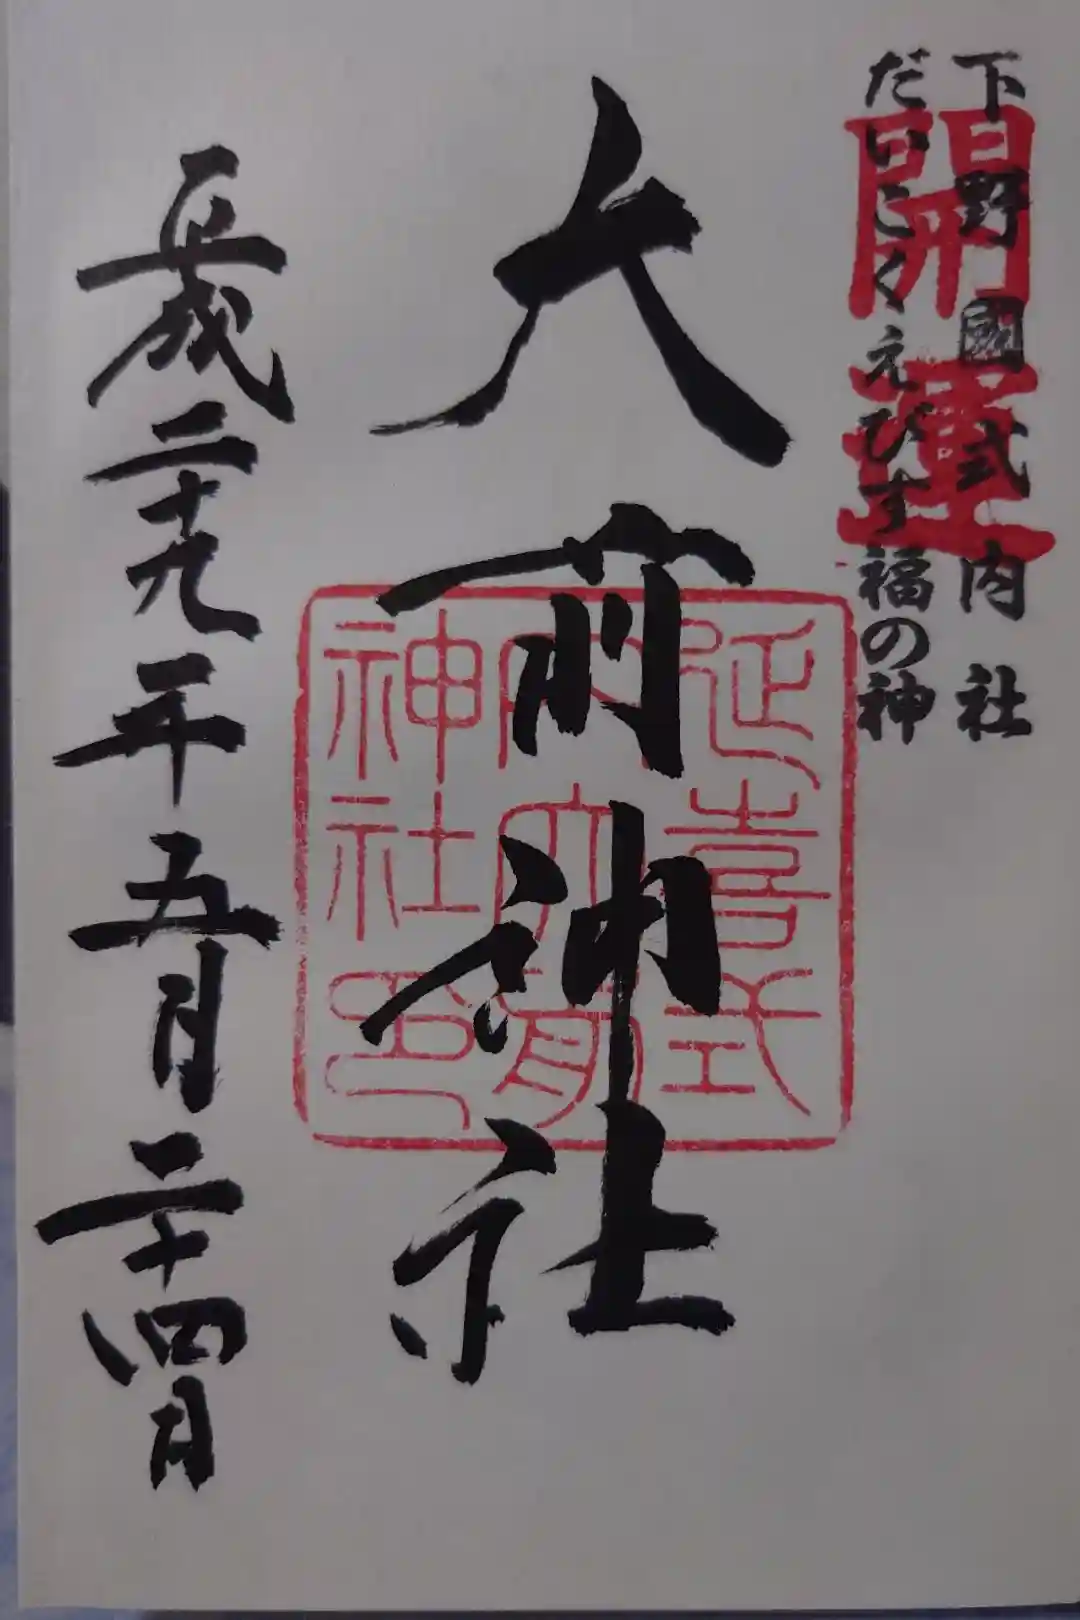 下野國式内社
だいこくえびす福の神
開運
大前神社
延喜式
内大前
神社印
平成二十九年五月二十四日